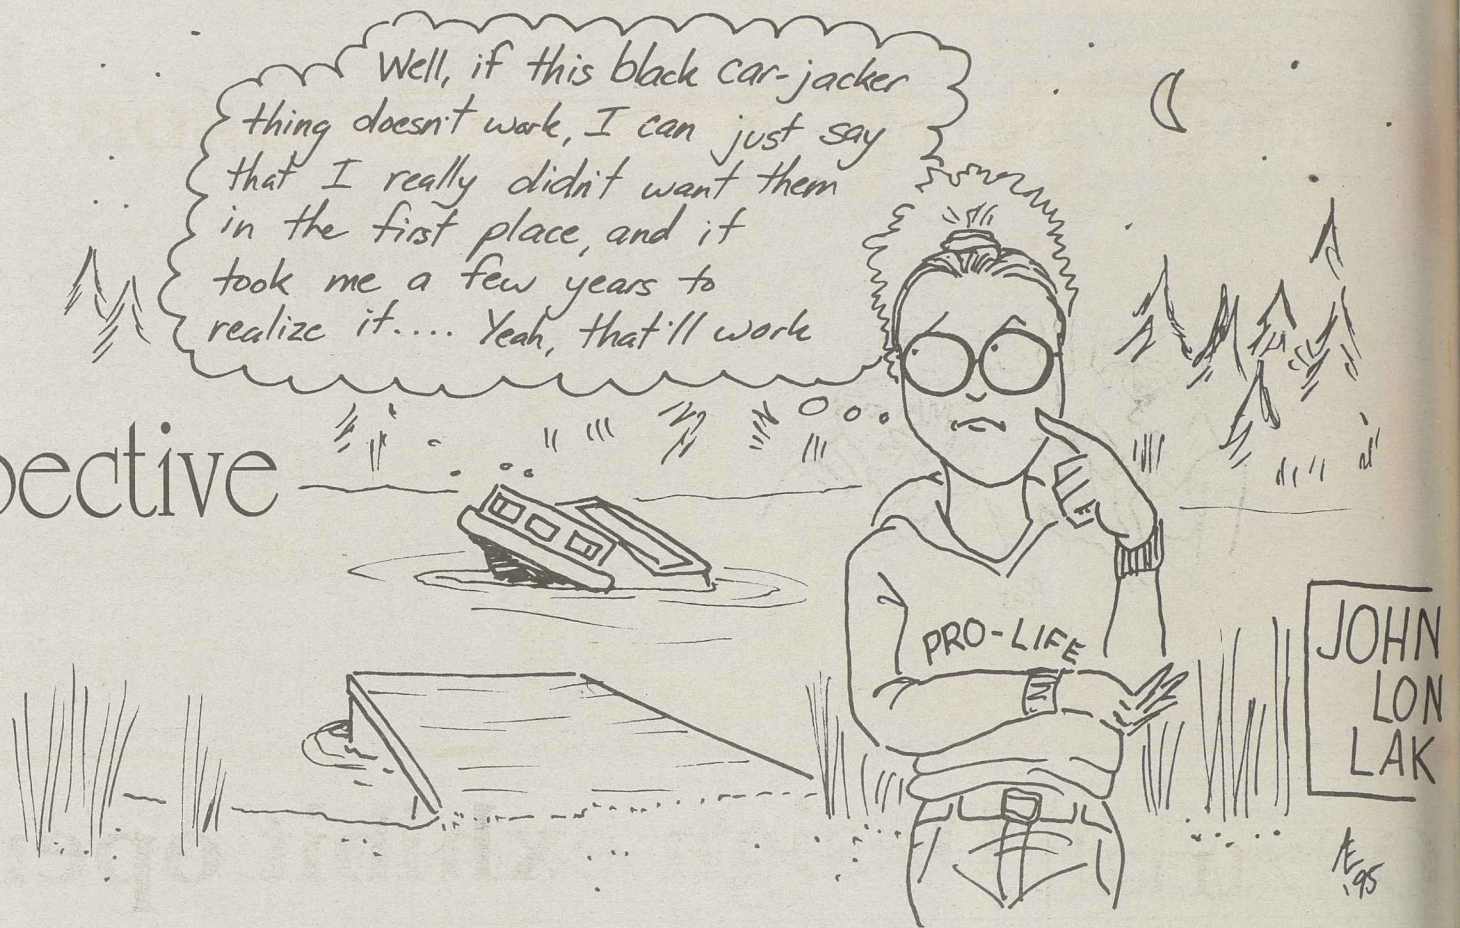 Well, if this black car-jacker
thing doesn't work, I can just say
that I really didn't want them
in the first place, and it
took me a few years to
realize it.... Yeah, that'll work
pective
PRO-LIFE
JOHN
LON
LAK
Æ
'95